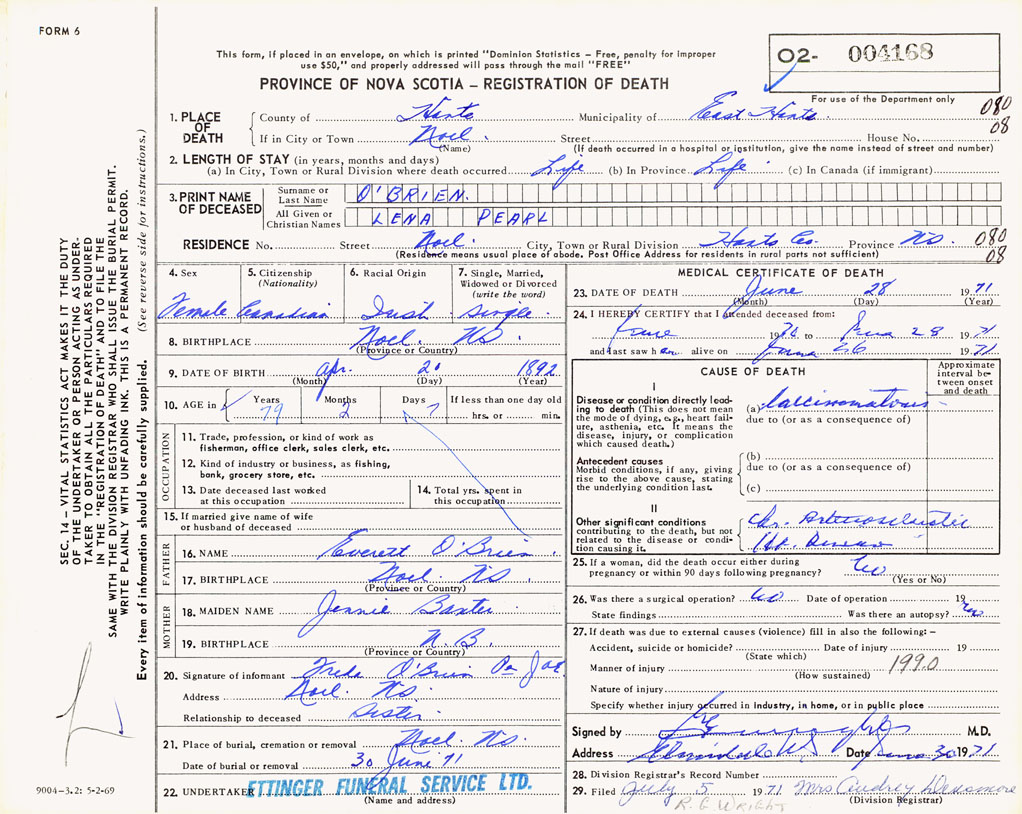 FORM 6
This form, if placed in an envelope, on which is printed "Dominion Statistics – Free, penalty for improper
use $50," and properly addressed will pass through the mail "FREE"
O2- 004168
PROVINCE OF NOVA SCOTIA – REGISTRATION OF DEATH
For use of the Department only
080
08
1. PLACE OF DEATH
County of Hants Municipality of East Hants.
If in City or Town Noel. Street House No.
(Name) (If death occurred in a hospital or institution, give the name instead of street and number)
2. LENGTH OF STAY (in years, months and days)
(a) In City, Town or Rural Division where death occurred Life (b) In Province Life (c) In Canada (if immigrant)
3. PRINT NAME OF DECEASED
Surname or Last Name O'BRIEN.
All Given or Christian Names LENA PEARL
RESIDENCE No. Street Noel. City, Town or Rural Division Hants Co. Province N.S. 080
08
(Residence means usual place of abode. Post Office Address for residents in rural parts not sufficient)
4. Sex 5. Citizenship (Nationality) 6. Racial Origin 7. Single, Married, Widowed or Divorced (write the word)
Female Canadian Irish single.
8. BIRTHPLACE Noel. N.S.
(Province or Country)
9. DATE OF BIRTH Apr. 20 1892
(Month) (Day) (Year)
10. AGE in Years Months Days If less than one day old
79 2 7 hrs. or min.
OCCUPATION
11. Trade, profession, or kind of work as
fisherman, office clerk, sales clerk, etc.
12. Kind of industry or business, as fishing,
bank, grocery store, etc.
13. Date deceased last worked
at this occupation
14. Total yrs. spent in
this occupation
15. If married give name of wife
or husband of deceased
FATHER
16. NAME Everett O'Brien.
17. BIRTHPLACE Noel. N.S.
(Province or Country)
MOTHER
18. MAIDEN NAME Jennie Baxter
19. BIRTHPLACE N.B.
(Province or Country)
20. Signature of informant Freda O'Brien
Address Noel. N.S.
Relationship to deceased Sister.
21. Place of burial, cremation or removal Noel. N.S.
Date of burial or removal 30 June 71
22. UNDERTAKER ETTINGER FUNERAL SERVICE LTD.
(Name and address)
MEDICAL CERTIFICATE OF DEATH
23. DATE OF DEATH June 28 1971
(Month) (Day) (Year)
24. I HEREBY CERTIFY that I attended deceased from:
June 1970 to June 28 1971
and last saw her alive on June 26 1971
CAUSE OF DEATH
Approximate interval between onset and death
I
Disease or condition directly leading to death (This does not mean
the mode of dying, e.g., heart failure, asthenia, etc. It means the
disease, injury, or complication
which caused death.)
(a) Carcinomatous
due to (or as a consequence of)
Antecedent causes
Morbid conditions, if any, giving
rise to the above cause, stating
the underlying condition last.
(b)
due to (or as a consequence of)
(c)
II
Other significant conditions
contributing to the death, but not
related to the disease or condition causing it.
Chr. Arteriosclerotic
Ht. Disease
25. If a woman, did the death occur either during
pregnancy or within 90 days following pregnancy? No
(Yes or No)
26. Was there a surgical operation? No Date of operation 19
State findings Was there an autopsy? No
27. If death was due to external causes (violence) fill in also the following: –
Accident, suicide or homicide? Date of injury 19
(State which)
Manner of injury 199.0
(How sustained)
Nature of injury
Specify whether injury occurred in industry, in home, or in public place
Signed by M.D.
Address Elmsdale N.S. Date June 30 1971
28. Division Registrar's Record Number
29. Filed July 5 1971 Mrs Audrey Densmore
(Division Registrar)
R. G. WRIGHT
SEC. 14 – VITAL STATISTICS ACT MAKES IT THE DUTY
OF THE UNDERTAKER OR PERSON ACTING AS UNDER-
TAKER TO OBTAIN ALL THE PARTICULARS REQUIRED
IN THE "REGISTRATION OF DEATH" AND TO FILE THE
SAME WITH THE DIVISION REGISTRAR WHO SHALL ISSUE THE BURIAL PERMIT.
WRITE PLAINLY WITH UNFADING INK. THIS IS A PERMANENT RECORD.
Every item of information should be carefully supplied. (See reverse side for instructions.)
9004-3.2: 5-2-69